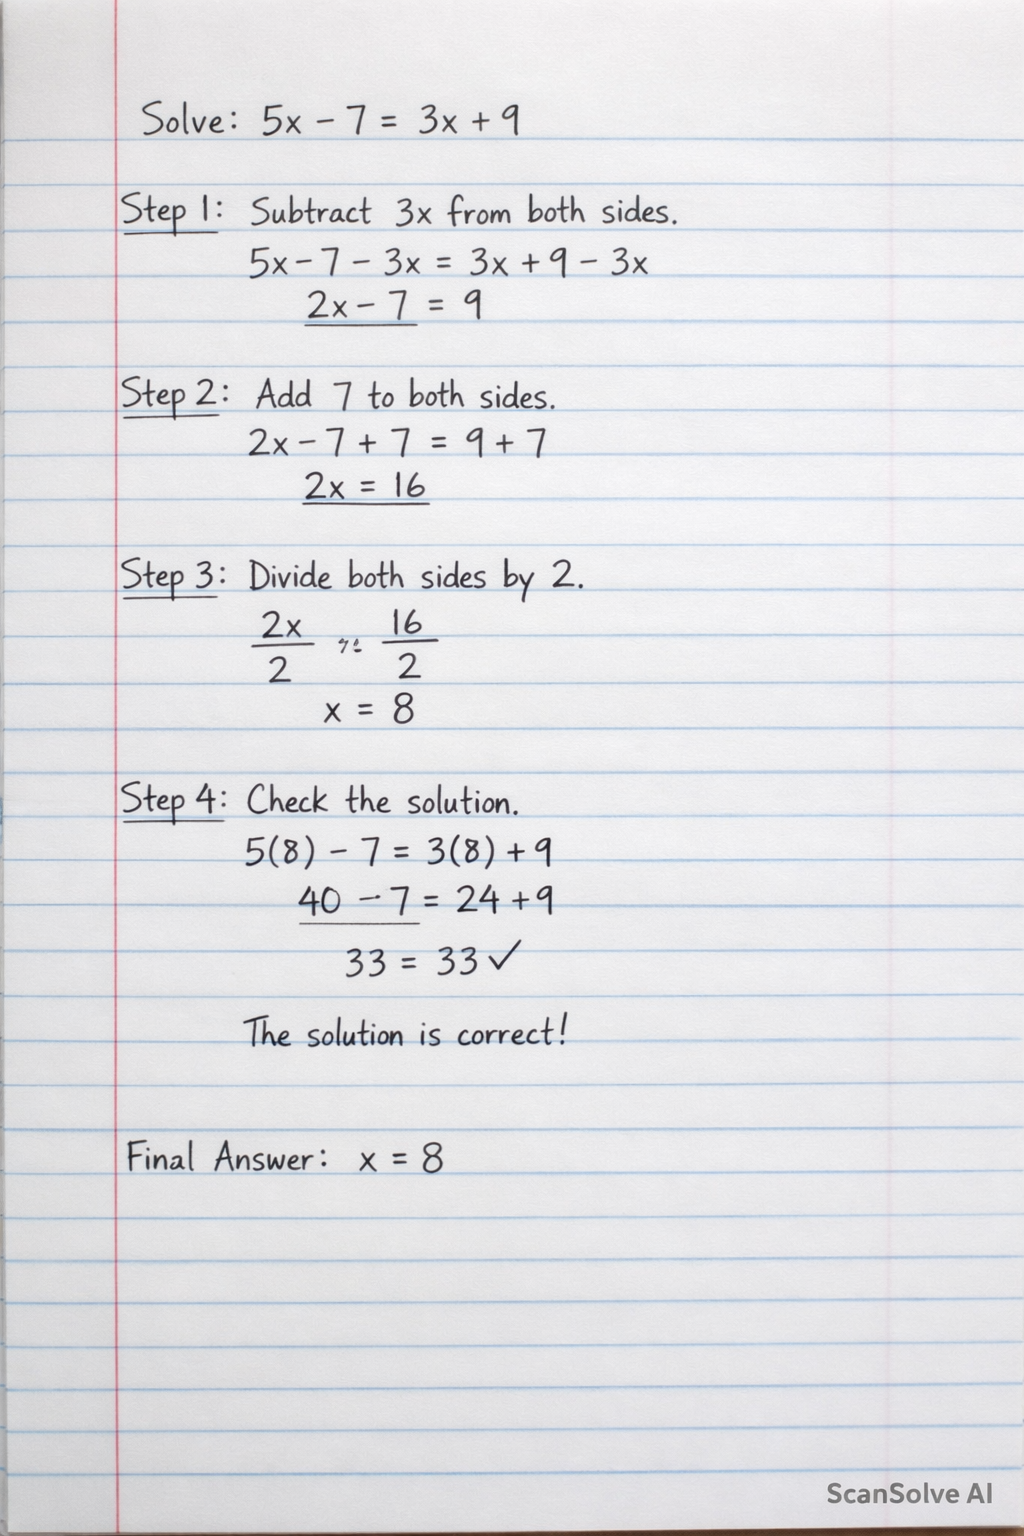 Solve: 5x - 7 = 3x + 9
Step 1: Subtract 3x from both sides.
5x - 7 - 3x = 3x + 9 - 3x
2x - 7 = 9
Step 2: Add 7 to both sides.
2x - 7 + 7 = 9 + 7
2x = 16
Step 3: Divide both sides by 2.
2x 16
2 2
x = 8
Step 4: Check the solution.
5(8) - 7 = 3(8) + 9
40 - 7 = 24 + 9
33 = 33 ✓
The solution is correct!
Final Answer: x = 8
ScanSolve AI